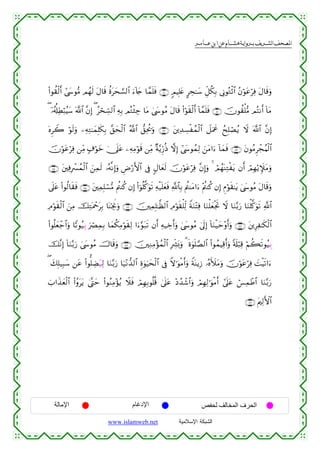 المصحف الشريف برواية هشام عن ابن عامر
وَقَالَ فِرْعَوْنُ ٱئْتُونِي بِكُلِّ سَٰحِرٍ عَلِيمٍ ۝ فَلَمَّا جَآءَ ٱلسَّحَرَةُ قَالَ لَهُم مُّوسَىٰٓ أَلْقُوا۟
مَآ أَنتُم مُّلْقُونَ ۝ فَلَمَّآ أَلْقَوْا۟ قَالَ مُوسَىٰ مَا جِئْتُم بِهِ ٱلسِّحْرُ ۖ إِنَّ ٱللَّهَ سَيُبْطِلُهُۥٓ ۖ
إِنَّ ٱللَّهَ لَا يُصْلِحُ عَمَلَ ٱلْمُفْسِدِينَ ۝ وَيُحِقُّ ٱللَّهُ ٱلْحَقَّ بِكَلِمَٰتِهِۦ وَلَوْ كَرِهَ
ٱلْمُجْرِمُونَ ۝ فَمَآ ءَامَنَ لِمُوسَىٰٓ إِلَّا ذُرِّيَّةٌ مِّن قَوْمِهِۦ عَلَىٰ خَوْفٍ مِّن فِرْعَوْنَ
وَمَلَإِي۟هِمْ أَن يَفْتِنَهُمْ ۚ وَإِنَّ فِرْعَوْنَ لَعَالٍ فِي ٱلْأَرْضِ وَإِنَّهُۥ لَمِنَ ٱلْمُسْرِفِينَ ۝
وَقَالَ مُوسَىٰ يَٰقَوْمِ إِن كُنتُمْ ءَامَنتُم بِٱللَّهِ فَعَلَيْهِ تَوَكَّلُوٓا۟ إِن كُنتُم مُّسْلِمِينَ ۝ فَقَالُوا۟ عَلَى
ٱللَّهِ تَوَكَّلْنَا رَبَّنَا لَا تَجْعَلْنَا فِتْنَةً لِّلْقَوْمِ ٱلظَّٰلِمِينَ ۝ وَنَجِّنَا بِرَحْمَتِكَ مِنَ ٱلْقَوْمِ
ٱلْكَٰفِرِينَ ۝ وَأَوْحَيْنَآ إِلَىٰ مُوسَىٰ وَأَخِيهِ أَن تَبَوَّءَا لِقَوْمِكُمَا بِمِصْرَ بِيُوتًا وَٱجْعَلُوا۟
بِيُوتَكُمْ قِبْلَةً وَأَقِيمُوا۟ ٱلصَّلَوٰةَ ۗ وَبَشِّرِ ٱلْمُؤْمِنِينَ ۝ وَقَالَ مُوسَىٰ رَبَّنَآ إِنَّكَ
ءَاتَيْتَ فِرْعَوْنَ وَمَلَأَهُۥ زِينَةً وَأَمْوَٰلًا فِي ٱلْحَيَوٰةِ ٱلدُّنْيَا رَبَّنَا لِيَضِلُّوا۟ عَن سَبِيلِكَ ۖ
رَبَّنَا ٱطْمِسْ عَلَىٰٓ أَمْوَٰلِهِمْ وَٱشْدُدْ عَلَىٰ قُلُوبِهِمْ فَلَا يُؤْمِنُوا۟ حَتَّىٰ يَرَوُا۟ ٱلْعَذَابَ
ٱلْأَلِيمَ ۝
الحرف المخالف لحفص الإدغام الإمالة
الشبكة الإسلامية www.islamweb.net